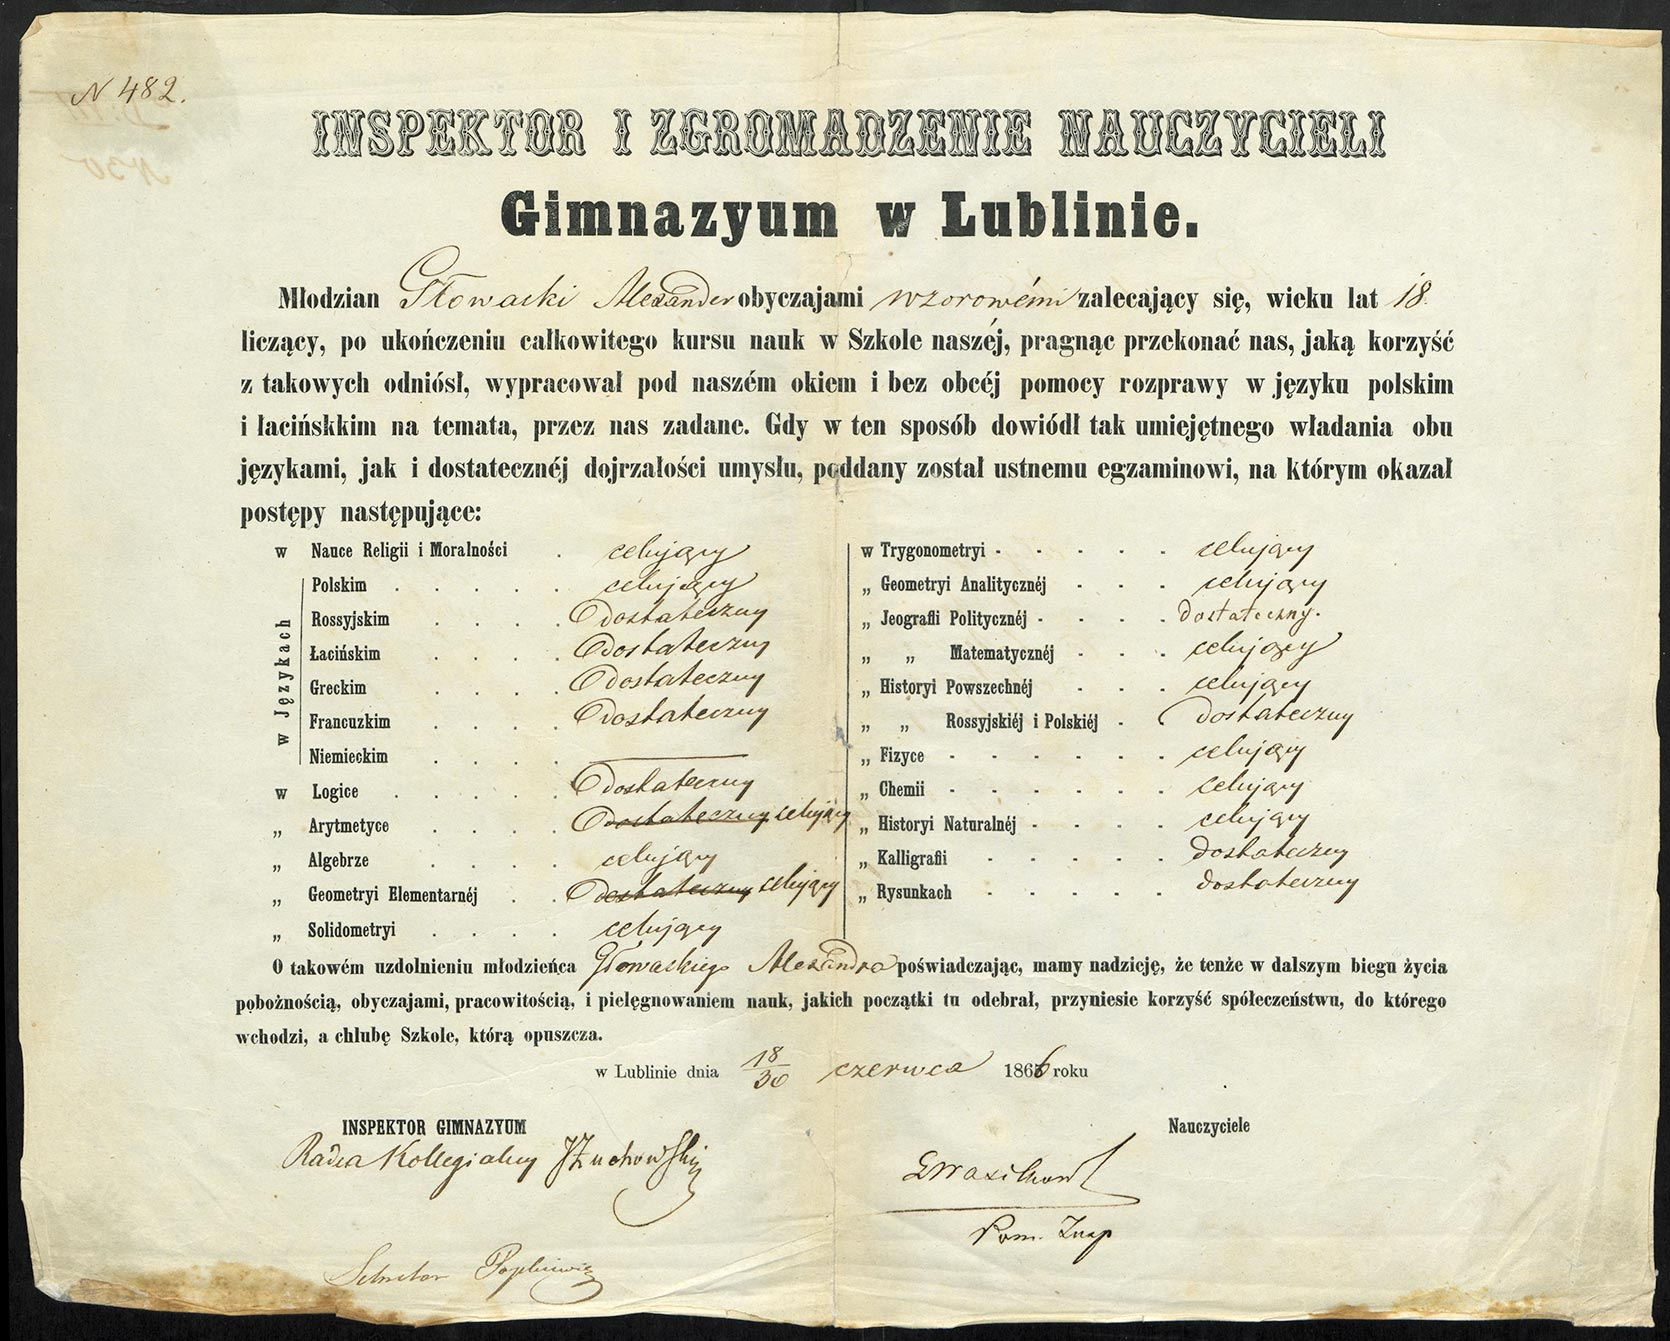 N 482.
INSPEKTOR I ZGROMADZENIE NAUCZYCIELI
Gimnazyum w Lublinie.
Młodzian Głowacki Alexander obyczajami wzorowémi zalecający się, wieku lat 18.
liczący, po ukończeniu całkowitego kursu nauk w Szkole naszéj, pragnąc przekonać nas, jaką korzyść
z takowych odniósł, wypracował pod naszém okiem i bez obcéj pomocy rozprawy w języku polskim
i łacińskkim na temata, przez nas zadane. Gdy w ten sposób dowiódł tak umiejętnego władania obu
językami, jak i dostatecznéj dojrzałości umysłu, poddany został ustnemu egzaminowi, na którym okazał
postępy następujące:
w Nauce Religii i Moralności . celujący
w Językach
Polskim . . . . . celujący
Rossyjskim . . . . Dostateczny
Łacińskim . . . . Dostateczny
Greckim . . . . Dostateczny
Francuzkim . . . . Dostateczny
Niemieckim . . . .
w Logice . . . . . Dostateczny
„ Arytmetyce . . . . Dostateczny celujący
„ Algebrze . . . . celujący
„ Geometryi Elementarnéj . . Dostateczny celujący
„ Solidometryi . . . . celujący
w Trygonometryi - - - - - celujący
„ Geometryi Analitycznéj - - - celujący
„ Jeografii Politycznéj - - - - dostateczny.
„ „ Matematycznéj - - - celujący
„ Historyi Powszechnéj - - - celujący
„ „ Rossyjskiéj i Polskiéj - dostateczny
„ Fizyce - - - - - - celujący
„ Chemii - - - - - - celujący
„ Historyi Naturalnéj - - - - celujący
„ Kalligrafii - - - - - dostateczny
„ Rysunkach - - - - - dostateczny
O takowém uzdolnieniu młodzieńca Głowackiego Alexandra poświadczając, mamy nadzieję, że tenże w dalszym biegu życia
pobożnością, obyczajami, pracowitością, i pielęgnowaniem nauk, jakich początki tu odebrał, przyniesie korzyść społeczeństwu, do którego
wchodzi, a chlubę Szkole, którą opuszcza.
w Lublinie dnia 18/30 czerwca 1866 roku
INSPEKTOR GIMNAZYUM
Radca Kollegialny JŻuchowski
Nauczyciele
Pom. Insp
Sekretarz